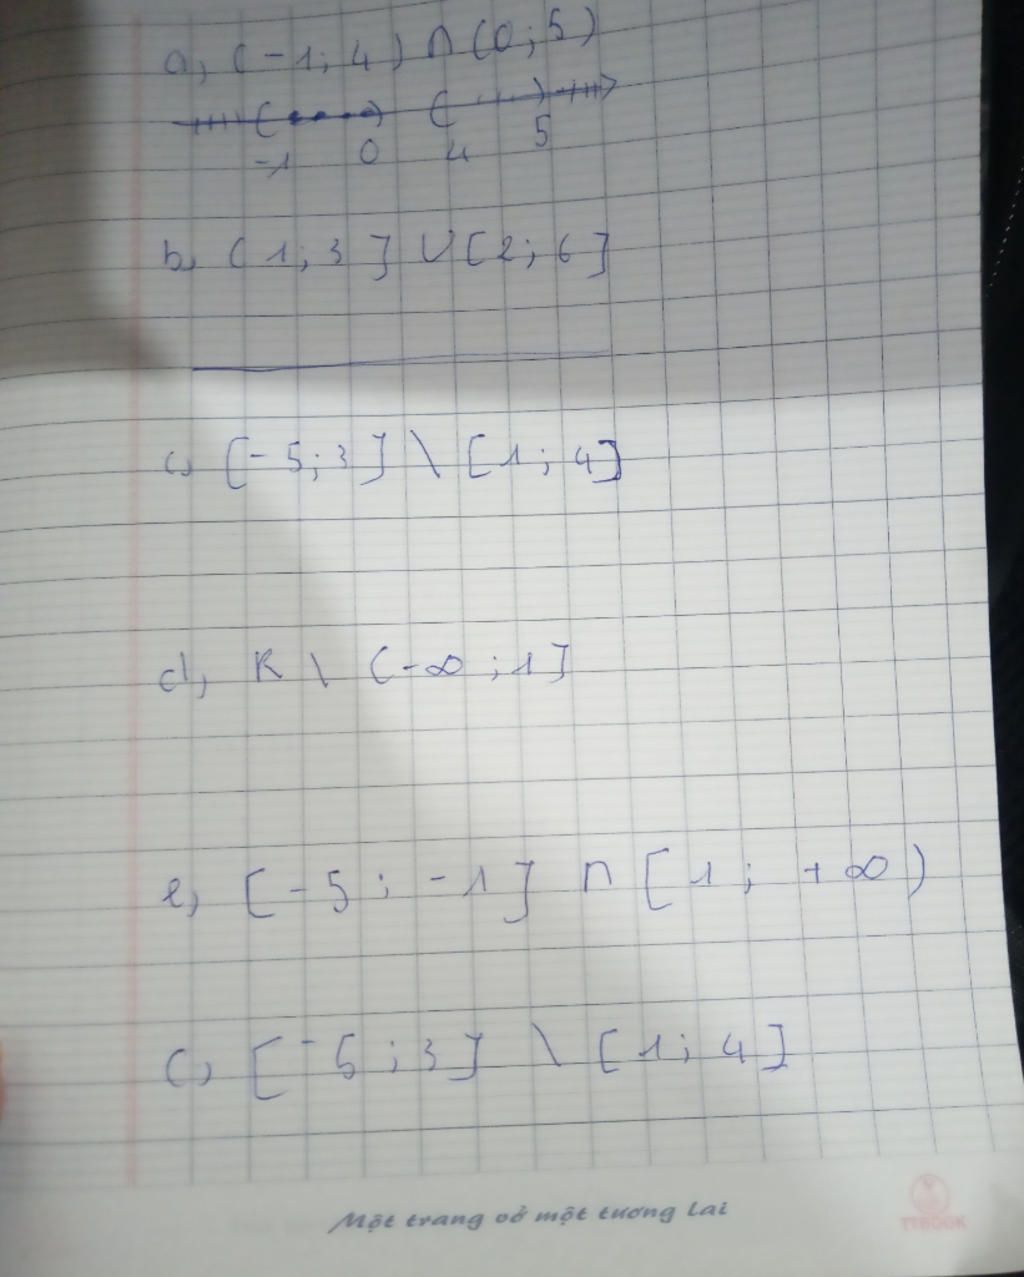 a, (-1; 4) ∩ (0; 5)
-1 0 4 5
b, (1; 3] ∪ [2; 6]
c, [-5; 3] \ [1; 4]
d, R \ (-∞; 1]
e, [-5; -1] ∩ [1; +∞)
c, [-5; 3] \ [1; 4]
Một trang vở một tương lai
TTBOOK